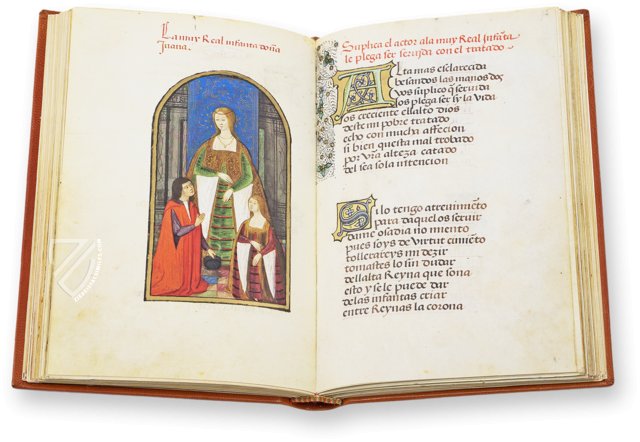 La muy Real infanta doña
Juana.
Suplica el actor ala muy Real Infãta
le plega ser seruida con el tratado
Alta mas esclarecida
besandos las manos do
vos suplico q̃ seruida
los plega ser sy la vida
os creciente el alto dios
deste mi pobre tratado
echo con mucha affecion
si bien questa mal trobado
por vr̃a alteza catado
del sea sola intencion
Si lo tengo atreuimiẽto
para daquelos seruir
dame osadia no miento
pues soys de virtut cimiẽto
tollerareys mi dezir
tomastes lo sin dudar
dellalta Reyna que sona
esto y se le puede dar
delas infantas criar
entre Reynas la corona